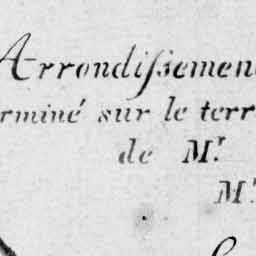 Arrondissemen
rminé sur le terr
de M.r
M.r